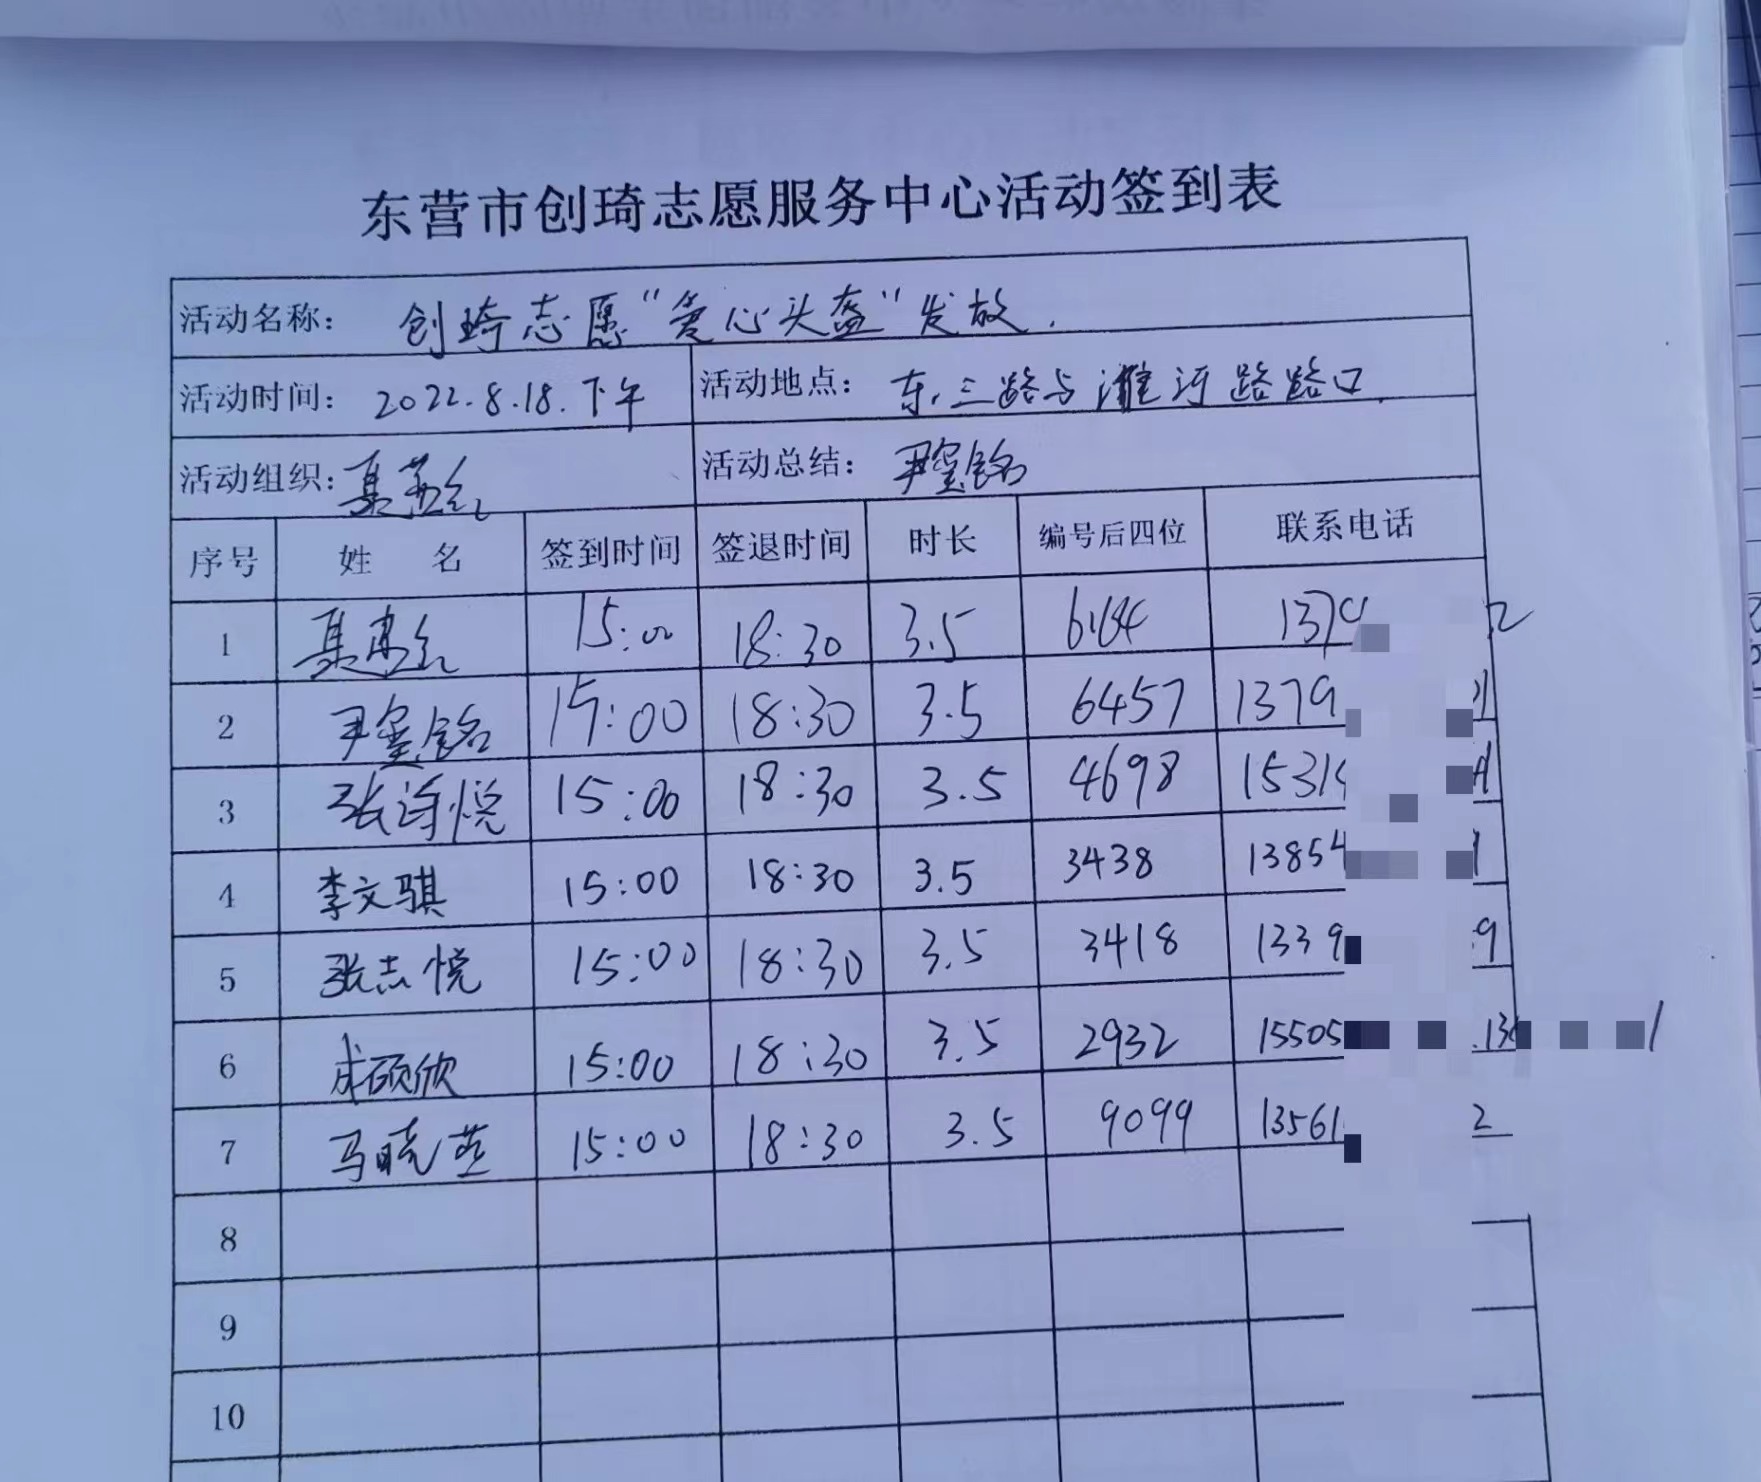 东营市创琦志愿服务中心活动签到表
活动名称： 创琦志愿“爱心头盔”发放.
活动时间： 2022.8.18.下午 活动地点： 东三路与潍河路路口.
活动组织： 活动总结： 尹玺铭
序号 姓 名 签到时间 签退时间 时长 编号后四位 联系电话
1 15:00 18:30 3.5 6164 137
2 尹玺铭 15:00 18:30 3.5 6457 1379
3 张诗悦 15:00 18:30 3.5 4698 1531
4 李文骐 15:00 18:30 3.5 3438 13854
5 张志悦 15:00 18:30 3.5 3418 1339 9
6 成硕欣 15:00 18:30 3.5 2932 15505 .13 1
7 马晓燕 15:00 18:30 3.5 9099 13561 2
8
9
10